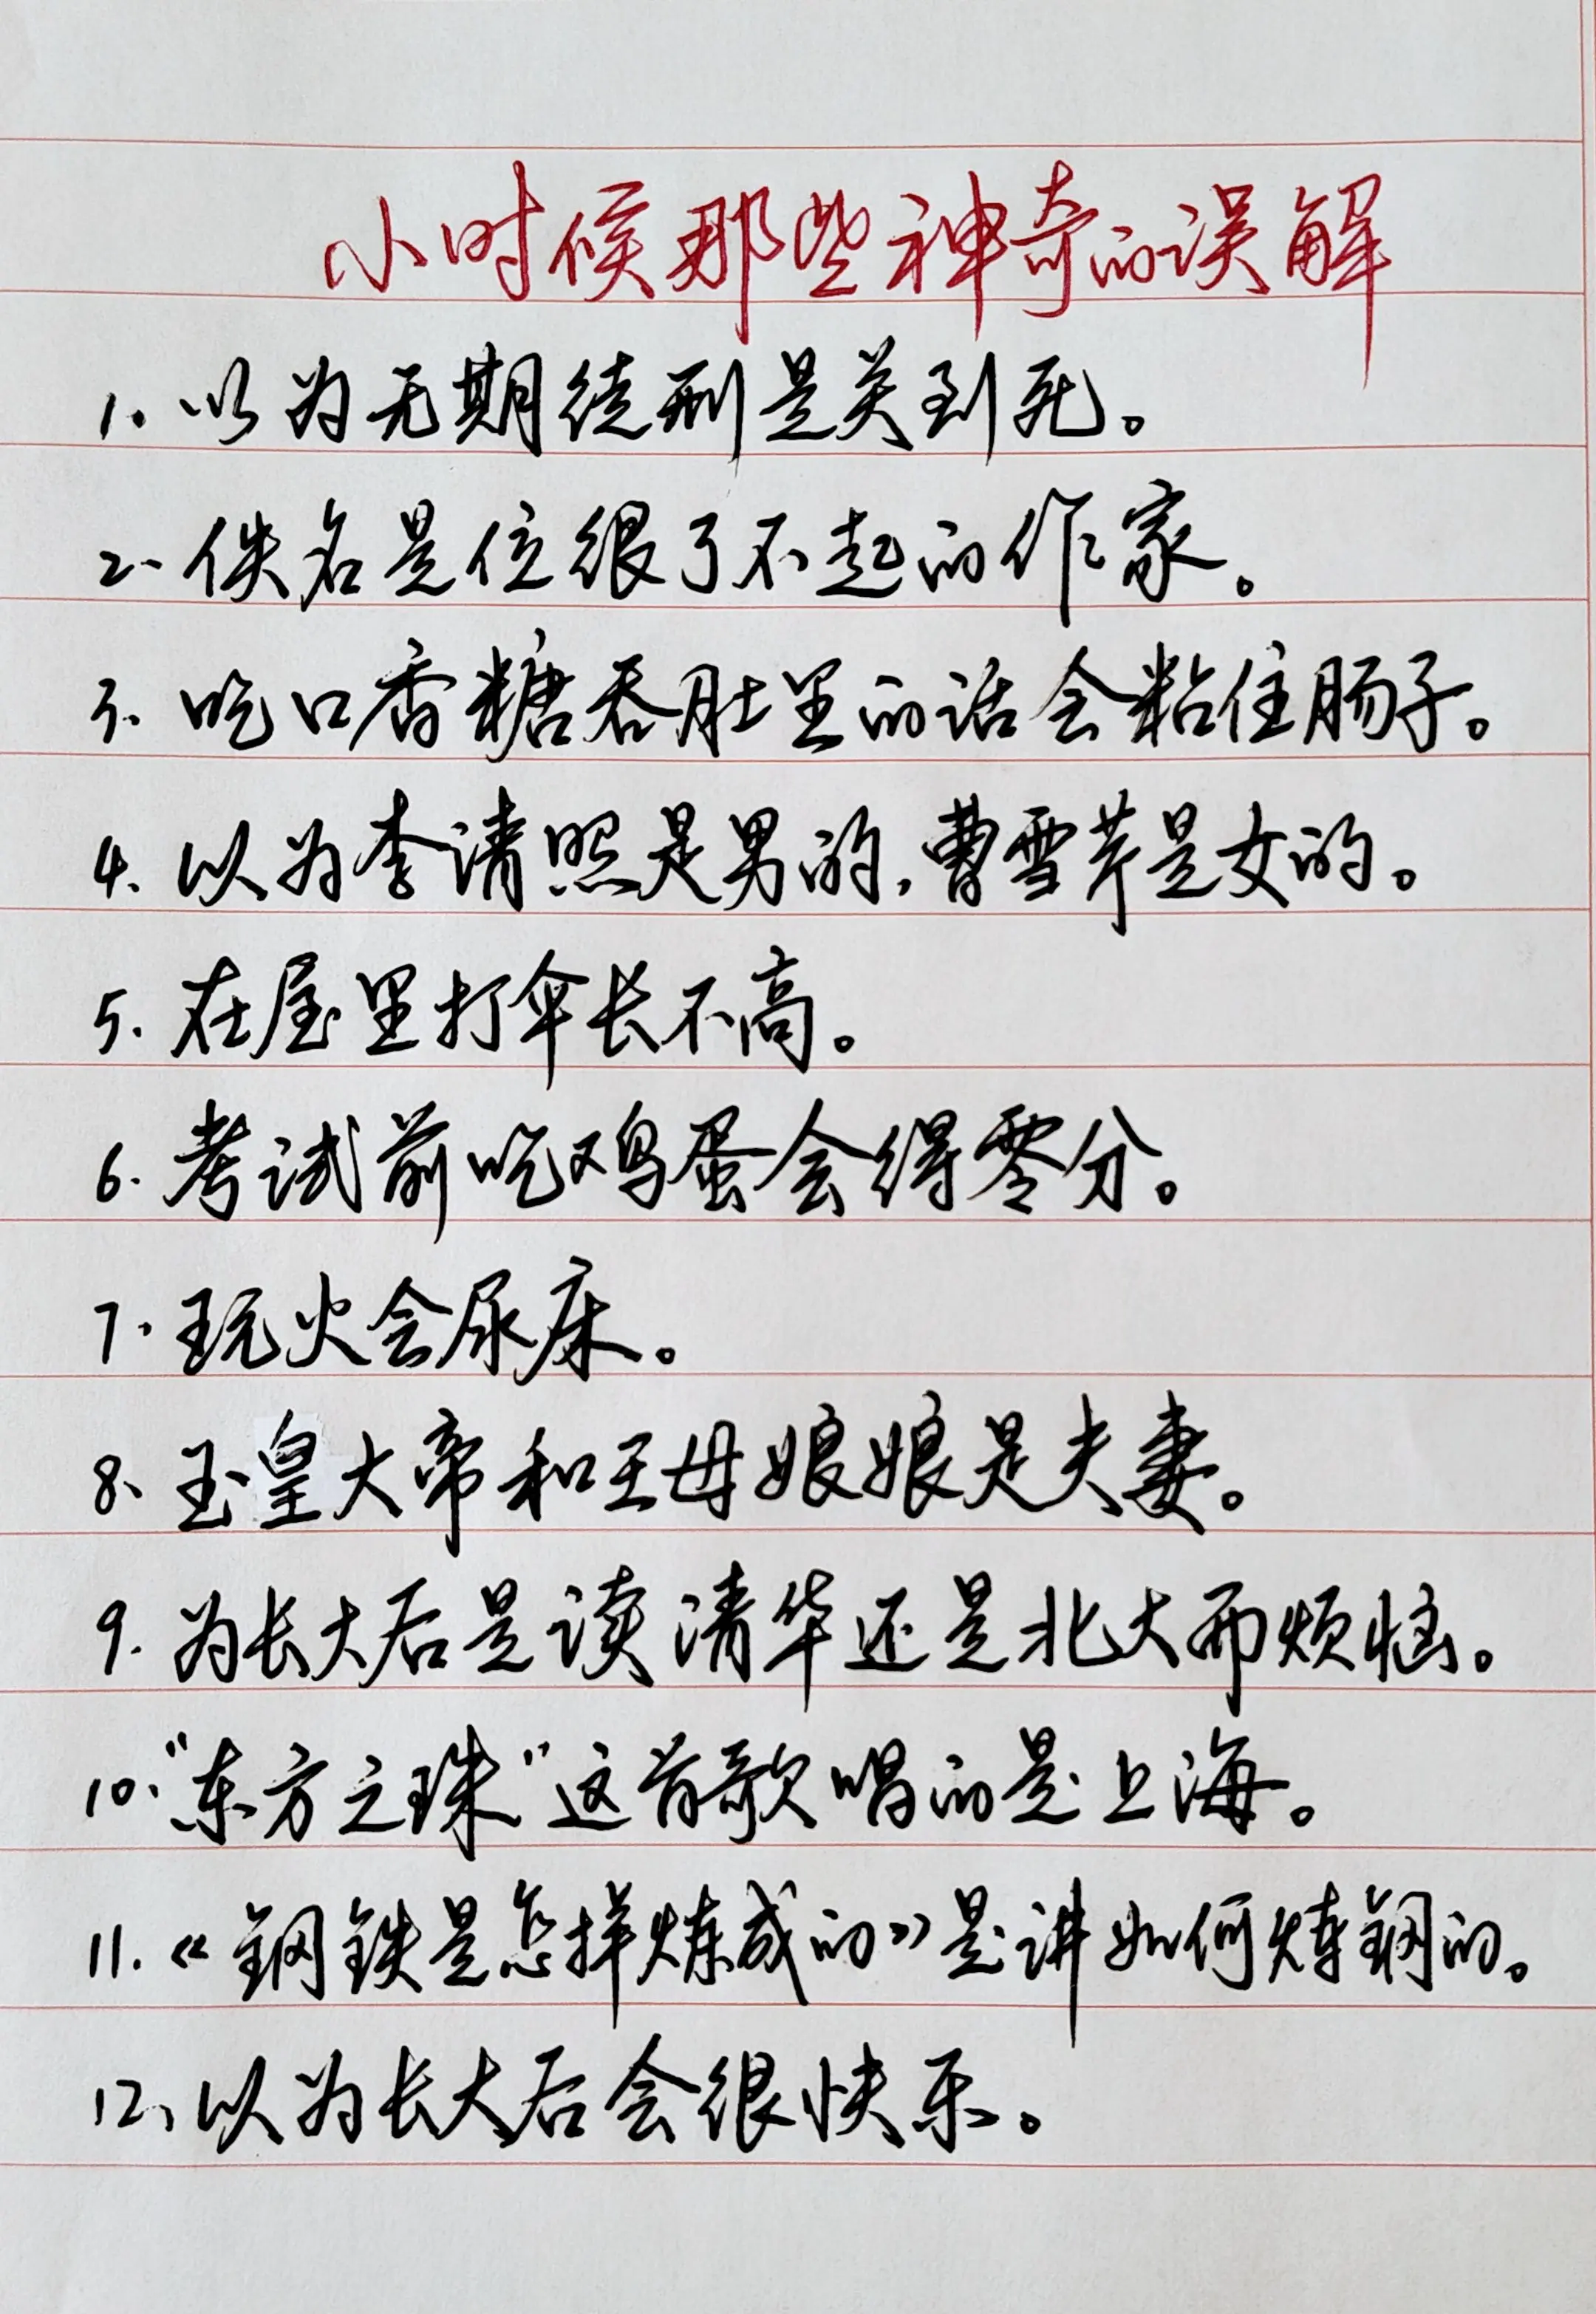 小时候那些神奇的误解
1. 以为无期徒刑是关到死。
2、佚名是位很了不起的作家。
3、吃口香糖吞肚里的话会粘住肠子。
4、以为李清照是男的,曹雪芹是女的。
5. 在屋里打伞长不高。
6. 考试前吃鸡蛋会得零分。
7. 玩火会尿床。
8、玉皇大帝和王母娘娘是夫妻。
9. 为长大后是读清华还是北大而烦恼。
10.“东方之珠”这首歌唱的是上海。
11.《钢铁是怎样炼成的》是讲如何炼钢的。
12、以为长大后会很快乐。